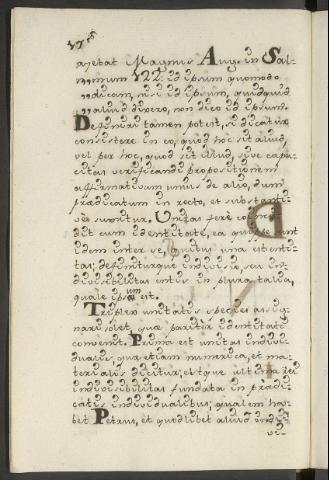 178
ajebat Magnus Aug. in Sal-
mum 122. id ipsum quomodo
dicam, nisi id ipsum, quidquid
aliud dixero, non dico id ipsum.
Definiri tamen potest, si dicatur
consistere in eo, quod hoc sit aliud,
vel per hoc, quod sit illud, sive capa-
citas verificandi propositionem
affirmativam unius de alio, dum
prædicatum in recto, et substanti-
ve sumitur. Unitas fere coinci-
dit cum identitate, ea quæ sunt
idem inter se, quibus una est entit-
tas; definiturque indivisio, seu in-
divisibilitas entis in plura talia,
quale ipsum est.
Triplex unitatis species assig-
nari solet, quæ pariter identitati
convenit. Prima est unitas indivi-
dualis, quæ etiam numerica, et ma-
terialis dicitur; estque ultima rei
indivisibilitas fundata in prædi-
catis individualibus; qualem ha-
bet Petrus, et quodlibet aliud indi-
vi-